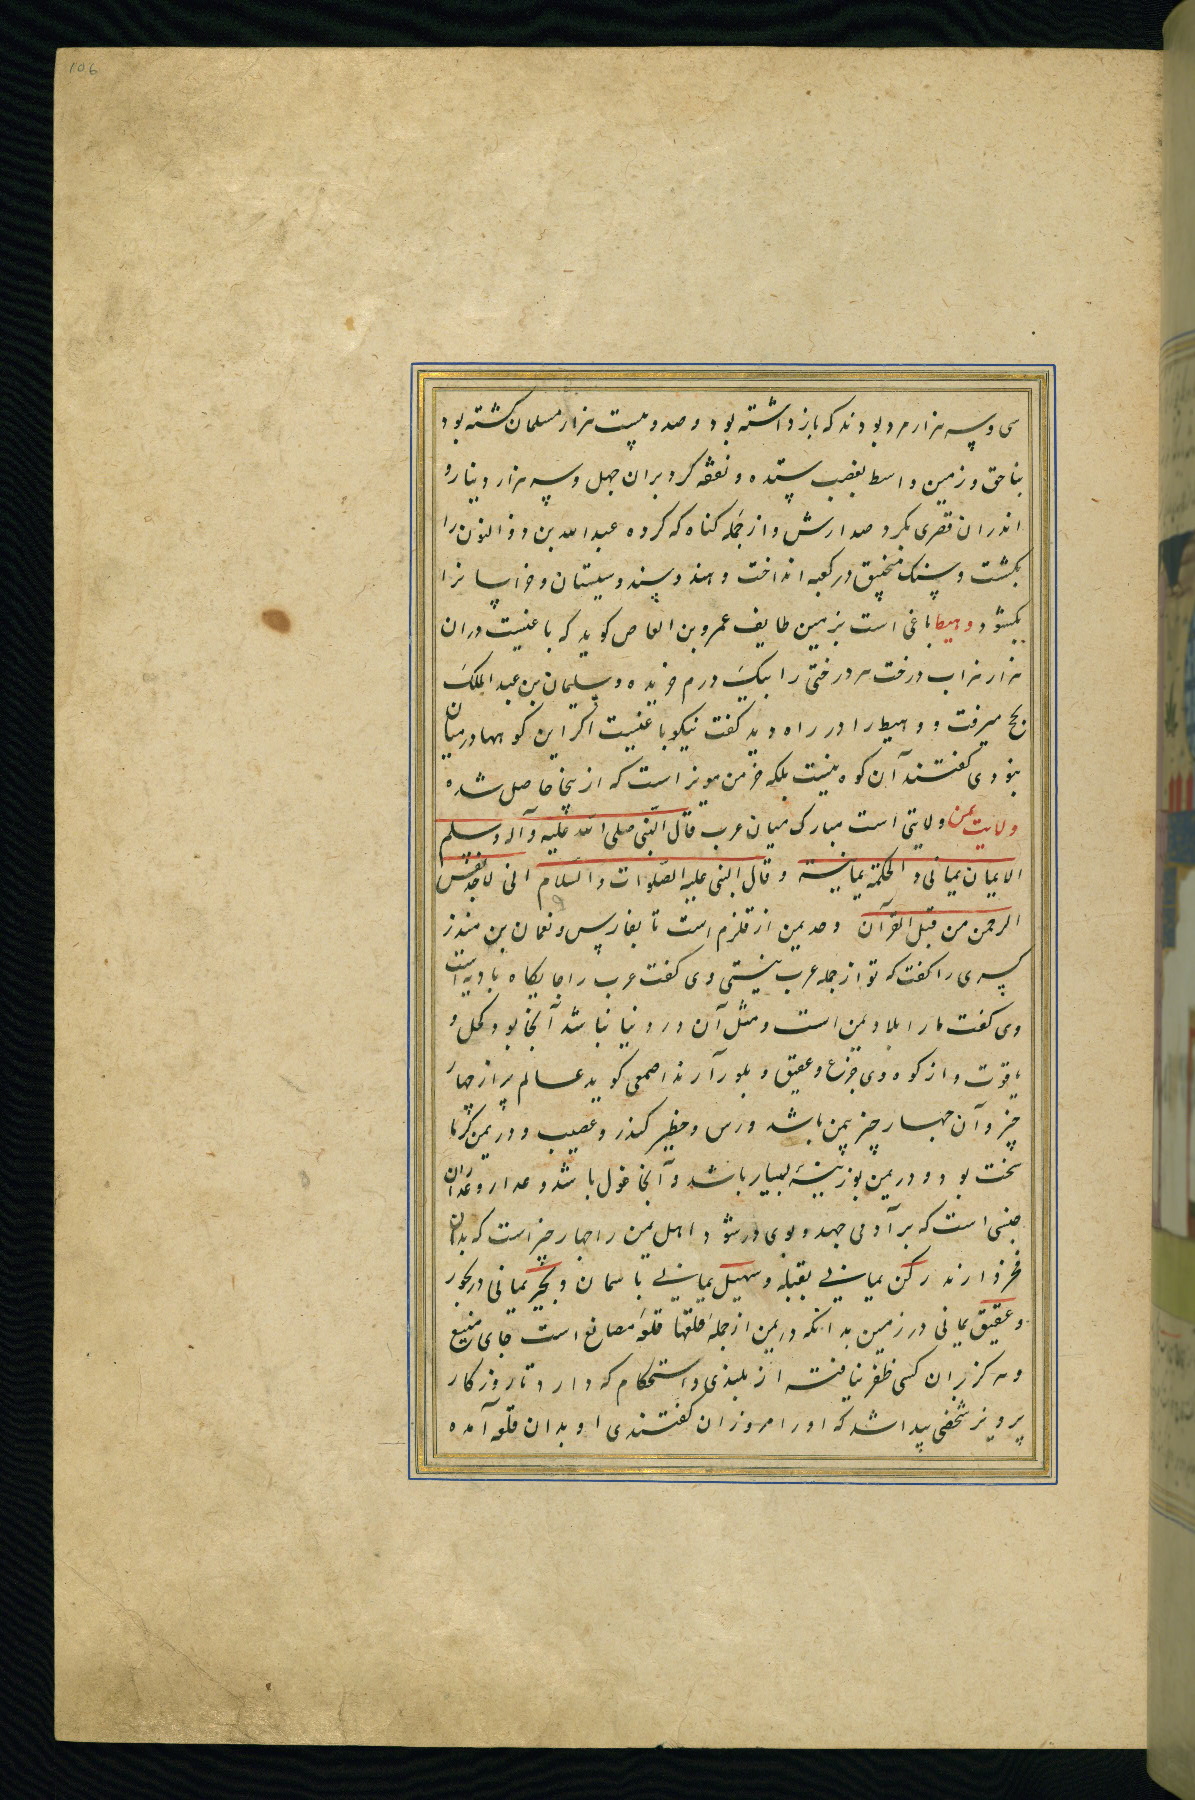 106
سی و سه هزار مرد بودند که بازداشته بود و صد و بیست هزار مسلمان کشته بود
بناحق و زمین واسط بغصب ستده و نفقه کرد بران چهل و سه هزار دینار و
اندران قصری بکرد صدارش و از جمله کناه که کرده عبدالله بن ذوالنون را
بکشت و سنک منجنیق در کعبه انداخت و هند و سند و سیستان و خراسانرا
بکشود وهیط باغی است بزمین طایف عمرو بن العاص کوید که باغیست دران
هزار هزاب درخت هر درختی را بیک درم خریده و سلیمان بن عبدالملک
بحج میرفت و وهیط را در راه دید کفت نیکو باغیست اکر این کوهها در میان
نبودی کفتند آن کوه نیست بلکه خرمن مویز است که ازینجا حاصل شده
ولایت یمن ولایتی است مبارک میان عرب قال النبی صلی الله علیه وآله وسلم
الایمان یمانی و الحکمة یمانیة و قال النبی علیه الصلوات والسلام انی لاجد نفس
الرحمن من قبل القرآن وحد یمن از قلزم است تا بفارس و نعمان بن منذر
کسری را کفت که تو از جمله عرب نیستی وی کفت عرب را جایکاه بادیه است
وی کفت ما را بلاد یمن است و مثل آن در دنیا نباشد آنجا بود کحل و
یاقوت و از کوه وی جزع و عقیق و بلور آرند اصمعی کوید عالم پر از چهار
چیز و آن چهار چیز بیمن باشد ورس و خطر کندر و عصیب و در یمن کرما
سخت بود و در یمن بوزینه بسیار باشد و آنجا غول باشد و عدار و عداران
جنسی است که بر آدمی جهد و بوی در شود اهل یمن را چهار چیز است که بدان
فخر دارند رکن یمانی بقبله و سهیل یمانی باسمان و بحر یمانی در بحور
و عقیق یمانی در زمین بدانکه در یمن از جمله قلعها قلعه مصانع است جای منیع
و هرکز بران کسی ظفر نیافته از بلندی و استحکام که دارد تا روزکار
پرویز شخصی پیدا شد که او را مروزان کفتندی او بدان قلعه آمده